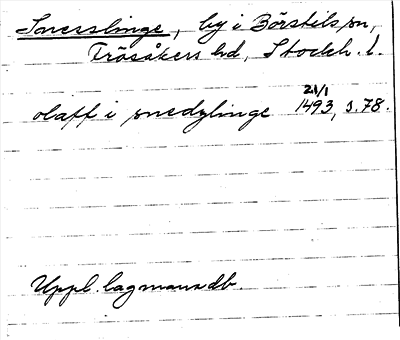 Snesslinge, by i Börstils sn,
Frösåkers hd, Stockh. l.
21/1
olaff i snedzlinge 1493, s. 78.
Uppl. lagmansdb.